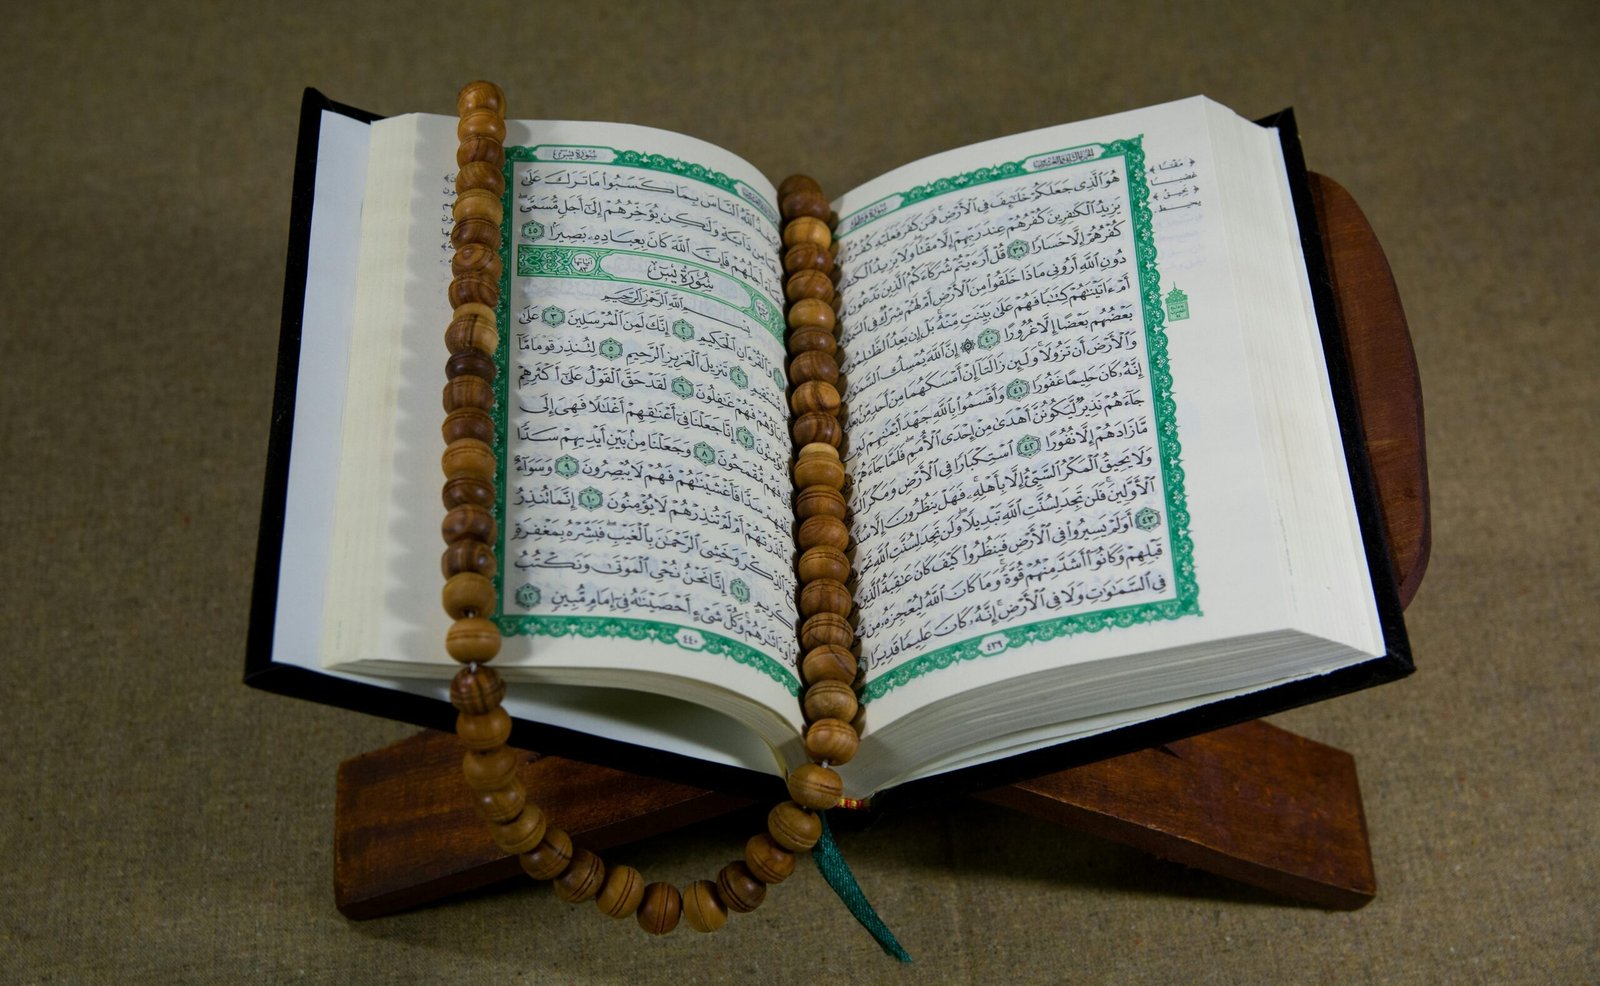 الجزء الثاني والعشرون
سُورَةُ فَاطِرٍ
هُوَ ٱلَّذِى جَعَلَكُمْ خَلَٰٓئِفَ فِى ٱلْأَرْضِ ۚ فَمَن كَفَرَ فَعَلَيْهِ كُفْرُهُۥ ۖ
يَزِيدُ ٱلْكَٰفِرِينَ كُفْرُهُمْ عِندَ رَبِّهِمْ إِلَّا مَقْتًا ۖ وَلَا يَزِيدُ
كُفْرُهُمْ إِلَّا خَسَارًا ٣٩ قُلْ أَرَءَيْتُمْ شُرَكَآءَكُمُ ٱلَّذِينَ تَدْعُونَ
دُونِ ٱللَّهِ أَرُونِى مَاذَا خَلَقُوا۟ مِنَ ٱلْأَرْضِ أَمْ لَهُمْ شِرْكٌ فِى
أَمْ ءَاتَيْنَٰهُمْ كِتَٰبًا فَهُمْ عَلَىٰ بَيِّنَتٍ مِّنْهُ ۚ بَلْ إِن يَعِدُ ٱلظَّٰلِمُونَ
بَعْضُهُم بَعْضًا إِلَّا غُرُورًا ٤٠ ۞ إِنَّ ٱللَّهَ يُمْسِكُ
وَٱلْأَرْضَ أَن تَزُولَا ۚ وَلَئِن زَالَتَآ إِنْ أَمْسَكَهُمَا مِنْ أَحَدٍ مِّنۢ
إِنَّهُۥ كَانَ حَلِيمًا غَفُورًا ٤١ وَأَقْسَمُوا۟ بِٱللَّهِ جَهْدَ أَيْمَٰنِهِمْ لَئِن
جَآءَهُمْ نَذِيرٌ لَّيَكُونُنَّ أَهْدَىٰ مِنْ إِحْدَى ٱلْأُمَمِ ۖ فَلَمَّا جَآءَهُمْ
مَّا زَادَهُمْ إِلَّا نُفُورًا ٤٢ ٱسْتِكْبَارًا فِى ٱلْأَرْضِ وَمَكْرَ
وَلَا يَحِيقُ ٱلْمَكْرُ ٱلسَّيِّئُ إِلَّا بِأَهْلِهِۦ ۚ فَهَلْ يَنظُرُونَ إِلَّا
ٱلْأَوَّلِينَ ۚ فَلَن تَجِدَ لِسُنَّتِ ٱللَّهِ تَبْدِيلًا ۖ وَلَن تَجِدَ لِسُنَّتِ ٱللَّهِ
٤٣ أَوَلَمْ يَسِيرُوا۟ فِى ٱلْأَرْضِ فَيَنظُرُوا۟ كَيْفَ كَانَ عَٰقِبَةُ ٱلَّذِينَ
قَبْلِهِمْ وَكَانُوٓا۟ أَشَدَّ مِنْهُمْ قُوَّةً ۚ وَمَا كَانَ ٱللَّهُ لِيُعْجِزَهُۥ مِن
فِى ٱلسَّمَٰوَٰتِ وَلَا فِى ٱلْأَرْضِ ۚ إِنَّهُۥ كَانَ عَلِيمًا قَدِيرًا
٤٣٩
مَقْتًا
يَحِيقُ
سُورَةُ يسٓ
ٱللَّهُ ٱلنَّاسَ بِمَا كَسَبُوا۟ مَا تَرَكَ عَلَىٰ
مِن دَآبَّةٍ وَلَٰكِن يُؤَخِّرُهُمْ إِلَىٰٓ أَجَلٍ مُّسَمًّى ۖ
أَجَلُهُمْ فَإِنَّ ٱللَّهَ كَانَ بِعِبَادِهِۦ بَصِيرًۢا ٤٥
سُورَةُ يسٓ
آياتها ٨٣
بِسْمِ ٱللَّهِ ٱلرَّحْمَٰنِ ٱلرَّحِيمِ
وَٱلْقُرْءَانِ ٱلْحَكِيمِ ٢ إِنَّكَ لَمِنَ ٱلْمُرْسَلِينَ ٣ عَلَىٰ
مُّسْتَقِيمٍ ٤ تَنزِيلَ ٱلْعَزِيزِ ٱلرَّحِيمِ ٥ لِتُنذِرَ قَوْمًا مَّآ
ءَابَآؤُهُمْ فَهُمْ غَٰفِلُونَ ٦ لَقَدْ حَقَّ ٱلْقَوْلُ عَلَىٰٓ أَكْثَرِهِمْ
يُؤْمِنُونَ ٧ إِنَّا جَعَلْنَا فِىٓ أَعْنَٰقِهِمْ أَغْلَٰلًا فَهِىَ إِلَى
فَهُم مُّقْمَحُونَ ٨ وَجَعَلْنَا مِنۢ بَيْنِ أَيْدِيهِمْ سَدًّا
سَدًّا فَأَغْشَيْنَٰهُمْ فَهُمْ لَا يُبْصِرُونَ ٩ وَسَوَآءٌ
ءَأَنذَرْتَهُمْ أَمْ لَمْ تُنذِرْهُمْ لَا يُؤْمِنُونَ ١٠ إِنَّمَا تُنذِرُ
ٱلذِّكْرَ وَخَشِىَ ٱلرَّحْمَٰنَ بِٱلْغَيْبِ ۖ فَبَشِّرْهُ بِمَغْفِرَةٍ
كَرِيمٍ ١١ إِنَّا نَحْنُ نُحْىِ ٱلْمَوْتَىٰ وَنَكْتُبُ
وَءَاثَٰرَهُمْ ۚ وَكُلَّ شَىْءٍ أَحْصَيْنَٰهُ فِىٓ إِمَامٍ مُّبِينٍ ١٢
٤٤٠